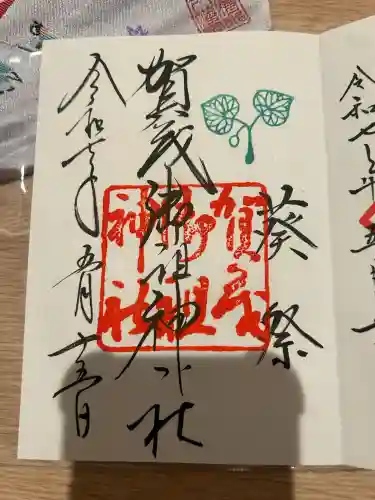 令和七年五
葵祭
賀茂御祖神社
賀茂
御祖
神社
令和七年五月十五日